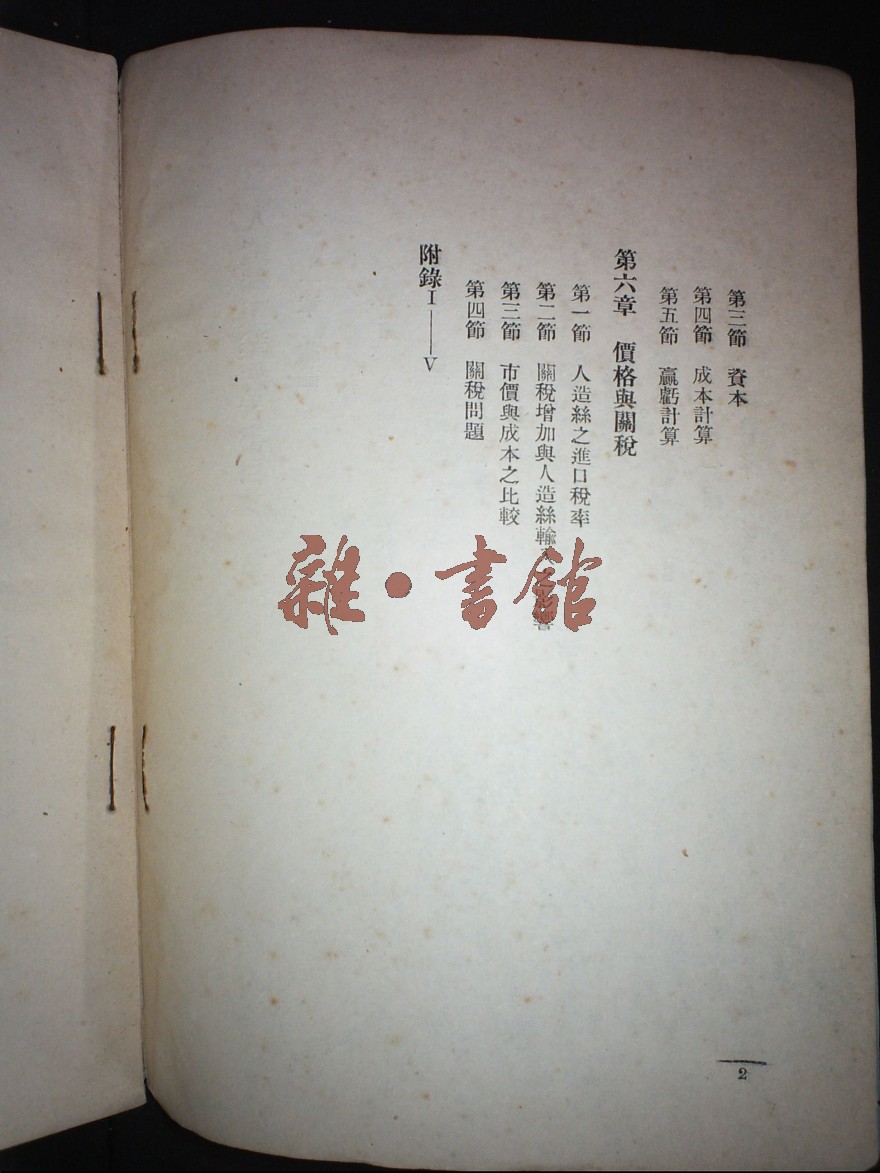 第三節　資本
第四節　成本計算
第五節　贏虧計算
第六章　價格與關稅
第一節　人造絲之進口稅率
第二節　關稅增加與人造絲輸入之影響
第三節　市價與成本之比較
第四節　關稅問題
附錄I——V
雜·書館
2